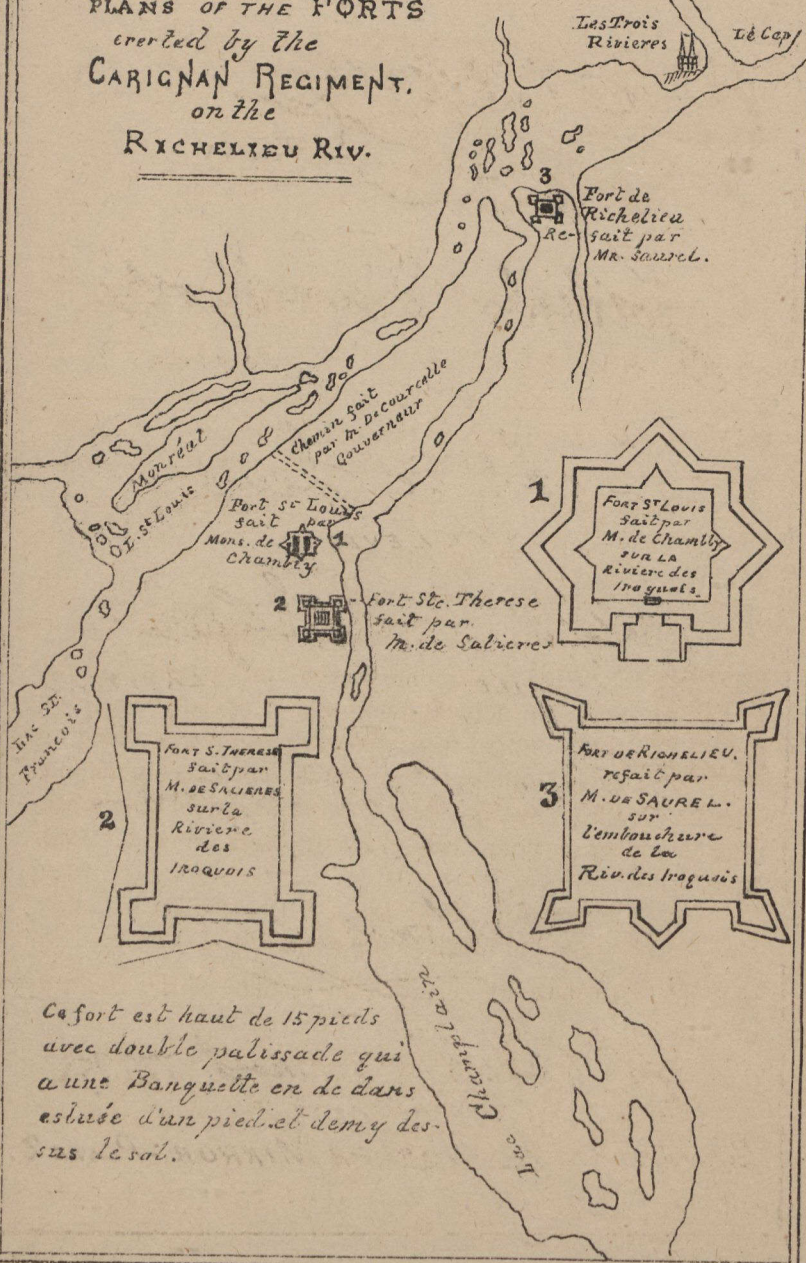 PLANS OF THE FORTS
erected by the
CARIGNAN REGIMENT.
on the
RICHELIEU RIV.
Les Trois
Rivieres
Le Cap
3
Fort de
Richelieu
Re-fait par
MR. Saurel.
Chemin fait
par M. De Courcelle
Gouverneur
Monréal
I. St Louis
Fort St Louis
fait par
Mons. de
Chambly
1
2
Fort Ste. Therese
fait par
M. de Salieres
Lac St.
Francois
1
FORT ST LOUIS
fait par
M. de Chambly
SUR LA
Riviere des
Iroquois
2
FORT S. THERESE
fait par
M. DE SALIERES
sur la
Riviere
des
IROQUOIS
3
FORT DE RICHELIEU.
refait par
M. DE SAUREL.
sur
l'embouchure
de la
Riv. des Iroquois
Lac Champlain
Ce fort est haut de 15 pieds
avec double palissade qui
a une Banquette en de dans
esluée d'un pied et demy des-
sus le sol.